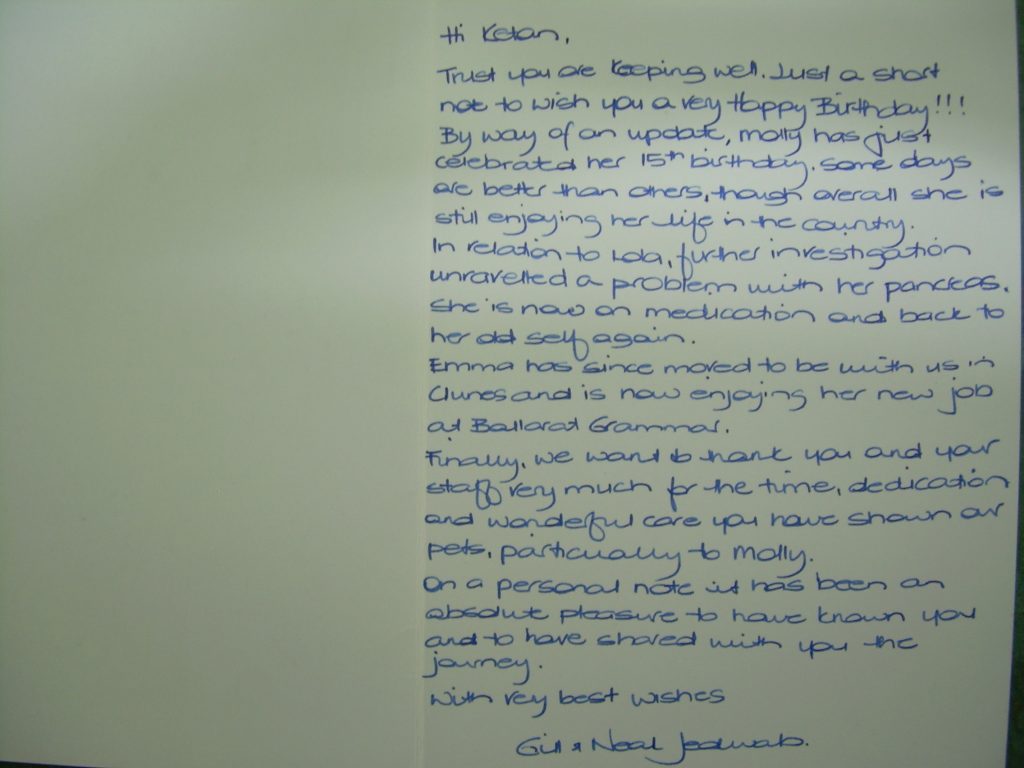 Hi Ketan,
Trust you are keeping well. Just a short
note to wish you a very Happy Birthday!!!
By way of an update, Molly has just
celebrated her 15th birthday. Some days
are better than others, though overall she is
still enjoying her life in the country.
In relation to Lola, further investigation
unravelled a problem with her pancreas.
She is now on medication and back to
her old self again.
Emma has since moved to be with us in
Clunes and is now enjoying her new job
at Ballarat Grammar.
Finally, we want to thank you and your
staff very much for the time, dedication
and wonderful care you have shown our
pets, particually to Molly.
On a personal note it has been an
absolute pleasure to have known you
and to have shared with you the
journey.
With very best wishes
Gill & Neal Jedwab.